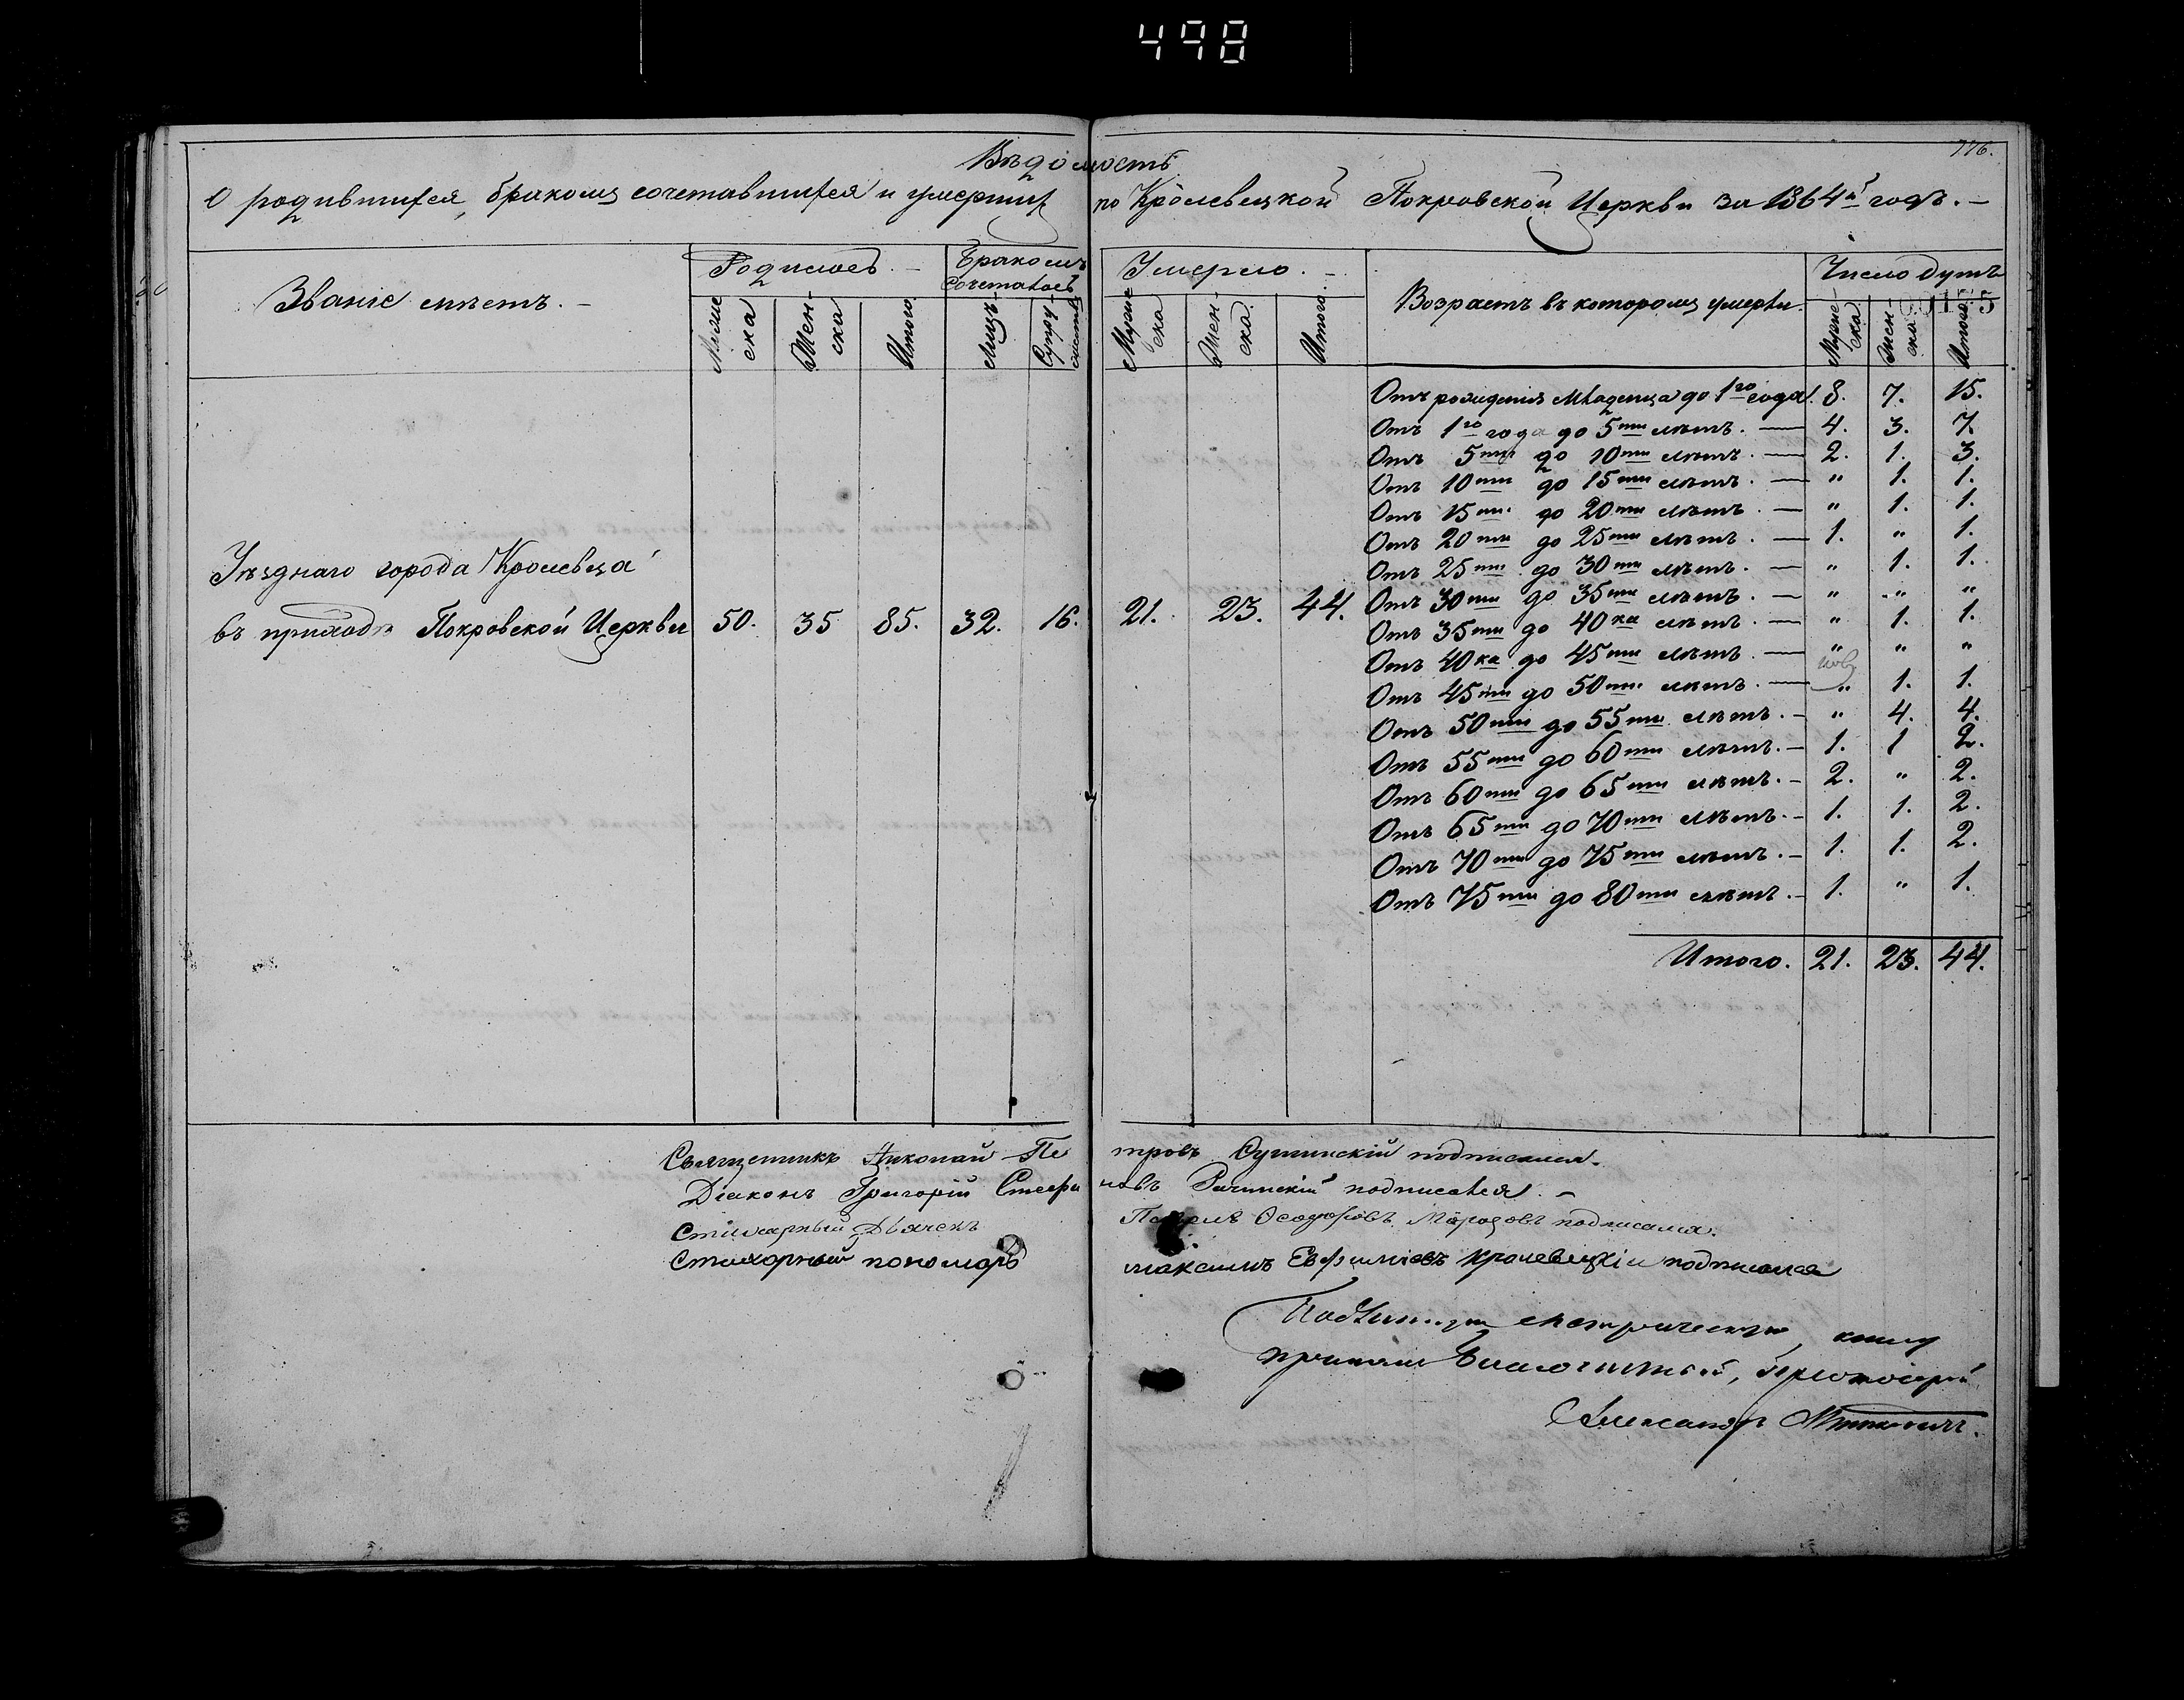 498
776.
Вѣдомость
О родившихся, бракомъ сочетавшихся и умершихъ по Кролевецкой Покровской Церкви за 1864й годъ. –
Званіе мѣстъ. –
Родилось. –
Бракомъ Сочеталось
Умерло. –
Возрастъ въ которомъ умерли.
Число душъ
Муже-ска
Жен-ска
Итого
Лицъ
Супру-жествъ
Муже-ска
Жен-ска
Итого
Муже-ска
Жен-ска
Итого
Отъ рожденія младенца до 1го года. 8. 7. 15.
Отъ 1го года до 5ти лѣтъ. — 4. 3. 7.
Отъ 5ти до 10ти лѣтъ. — 2. 1. 3.
Отъ 10ти до 15ти лѣтъ. — „ 1. 1.
Отъ 15ти до 20ти лѣтъ. — „ 1. 1.
Отъ 20ти до 25ти лѣтъ. — 1. „ 1.
Отъ 25ти до 30ти лѣтъ. — „ 1. 1.
Отъ 30ти до 35ти лѣтъ. — „ „ „
Отъ 35ти до 40ка лѣтъ. — „ 1. 1.
Отъ 40ка до 45ти лѣтъ. — „ „ „
Отъ 45ти до 50ти лѣтъ. — „ 1. 1.
Отъ 50ти до 55ти лѣтъ. – „ 4. 4.
Отъ 55ти до 60ти лѣтъ. – 1. 1 2.
Отъ 60ти до 65ти лѣтъ. – 2. „ 2.
Отъ 65ти до 70ти лѣтъ. – 1. 1. 2.
Отъ 70ти до 75ти лѣтъ. – 1. 1. 2.
Отъ 75ти до 80ти лѣтъ. – 1. „ 1.
Итого. 21. 23. 44.
Уѣзднаго города Кролевца
въ приходѣ Покровской Церкви 50. 35 85. 32. 16. 21. 23. 44.
Священникъ Николай Петровъ Сушинскій подписался.
Діаконъ Григорій Стефановъ Рачинскій подписался. –
Стихарный Дьячекъ Ѳеодоровъ Морозовъ подписался.
Стихарный пономарь Максимъ Евфиміевъ Кролевецкій подписался
метрическую книгу
принялъ Благочинный, Протоіерей
Александръ